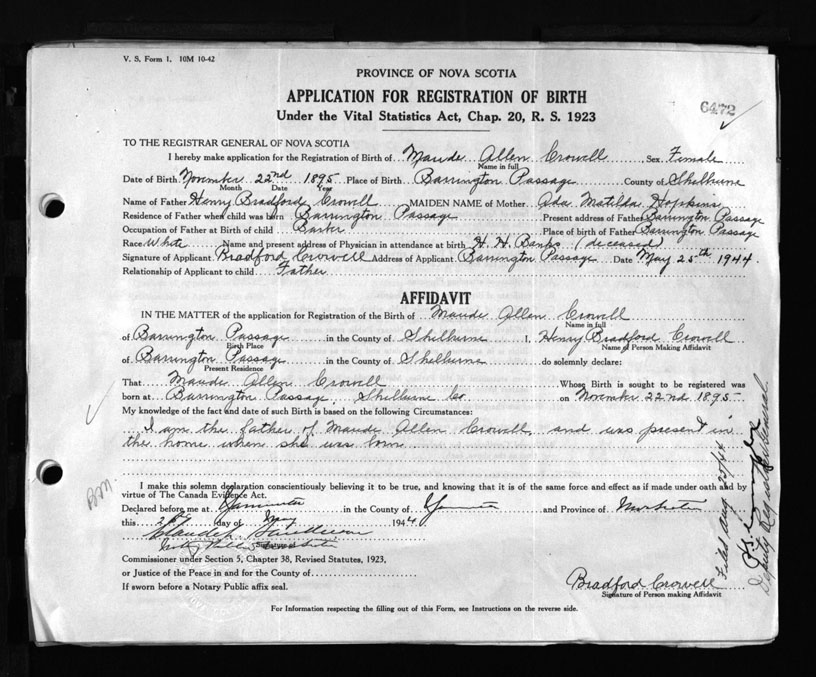 V. S. Form 1. 10M 10-42
PROVINCE OF NOVA SCOTIA
APPLICATION FOR REGISTRATION OF BIRTH
6472
Under the Vital Statistics Act, Chap. 20, R. S. 1923
TO THE REGISTRAR GENERAL OF NOVA SCOTIA
I hereby make application for the Registration of Birth of Maude Allen Crowell Sex Female
Name in full
Date of Birth November 22nd 1895 Place of Birth Barrington Passage County of Shelburne
Month Date Year
Name of Father Henry Bradford Crowell MAIDEN NAME of Mother Ada Matilda Hopkins
Residence of Father when child was born Barrington Passage Present address of Father Barrington Passage
Occupation of Father at Birth of child Place of birth of Father Barrington Passage
Race White Name and present address of Physician in attendance at birth H. H. Banks (deceased)
Signature of Applicant Bradford Crowell Address of Applicant Barrington Passage Date May 25th 1944
Relationship of Applicant to child Father
AFFIDAVIT
IN THE MATTER of the application for Registration of the Birth of Maude Allen Crowell
Name in full
of Barrington Passage in the County of Shelburne I, Henry Bradford Crowell
Birth Place Name of Person Making Affidavit
of Barrington Passage in the County of Shelburne do solemnly declare:
Present Residence
That Maude Allen Crowell Whose Birth is sought to be registered was
born at Barrington Passage, Shelburne Co on November 22nd 1895
My knowledge of the fact and date of such Birth is based on the following Circumstances:
I am the father of Maude Allen Crowell, and was present in
the home when she was born
I make this solemn declaration conscientiously believing it to be true, and knowing that it is of the same force and effect as if made under oath and by
virtue of The Canada Evidence Act.
Declared before me at Yarmouth in the County of Yarmouth and Province of Nova Scotia
this day of May 1944
Commissioner under Section 5, Chapter 38, Revised Statutes, 1923,
or Justice of the Peace in and for the County of
If sworn before a Notary Public affix seal.
Bradford Crowell
Signature of Person making Affidavit
For Information respecting the filling out of this Form, see Instructions on the reverse side.
B.M.
Deputy Registrar General.